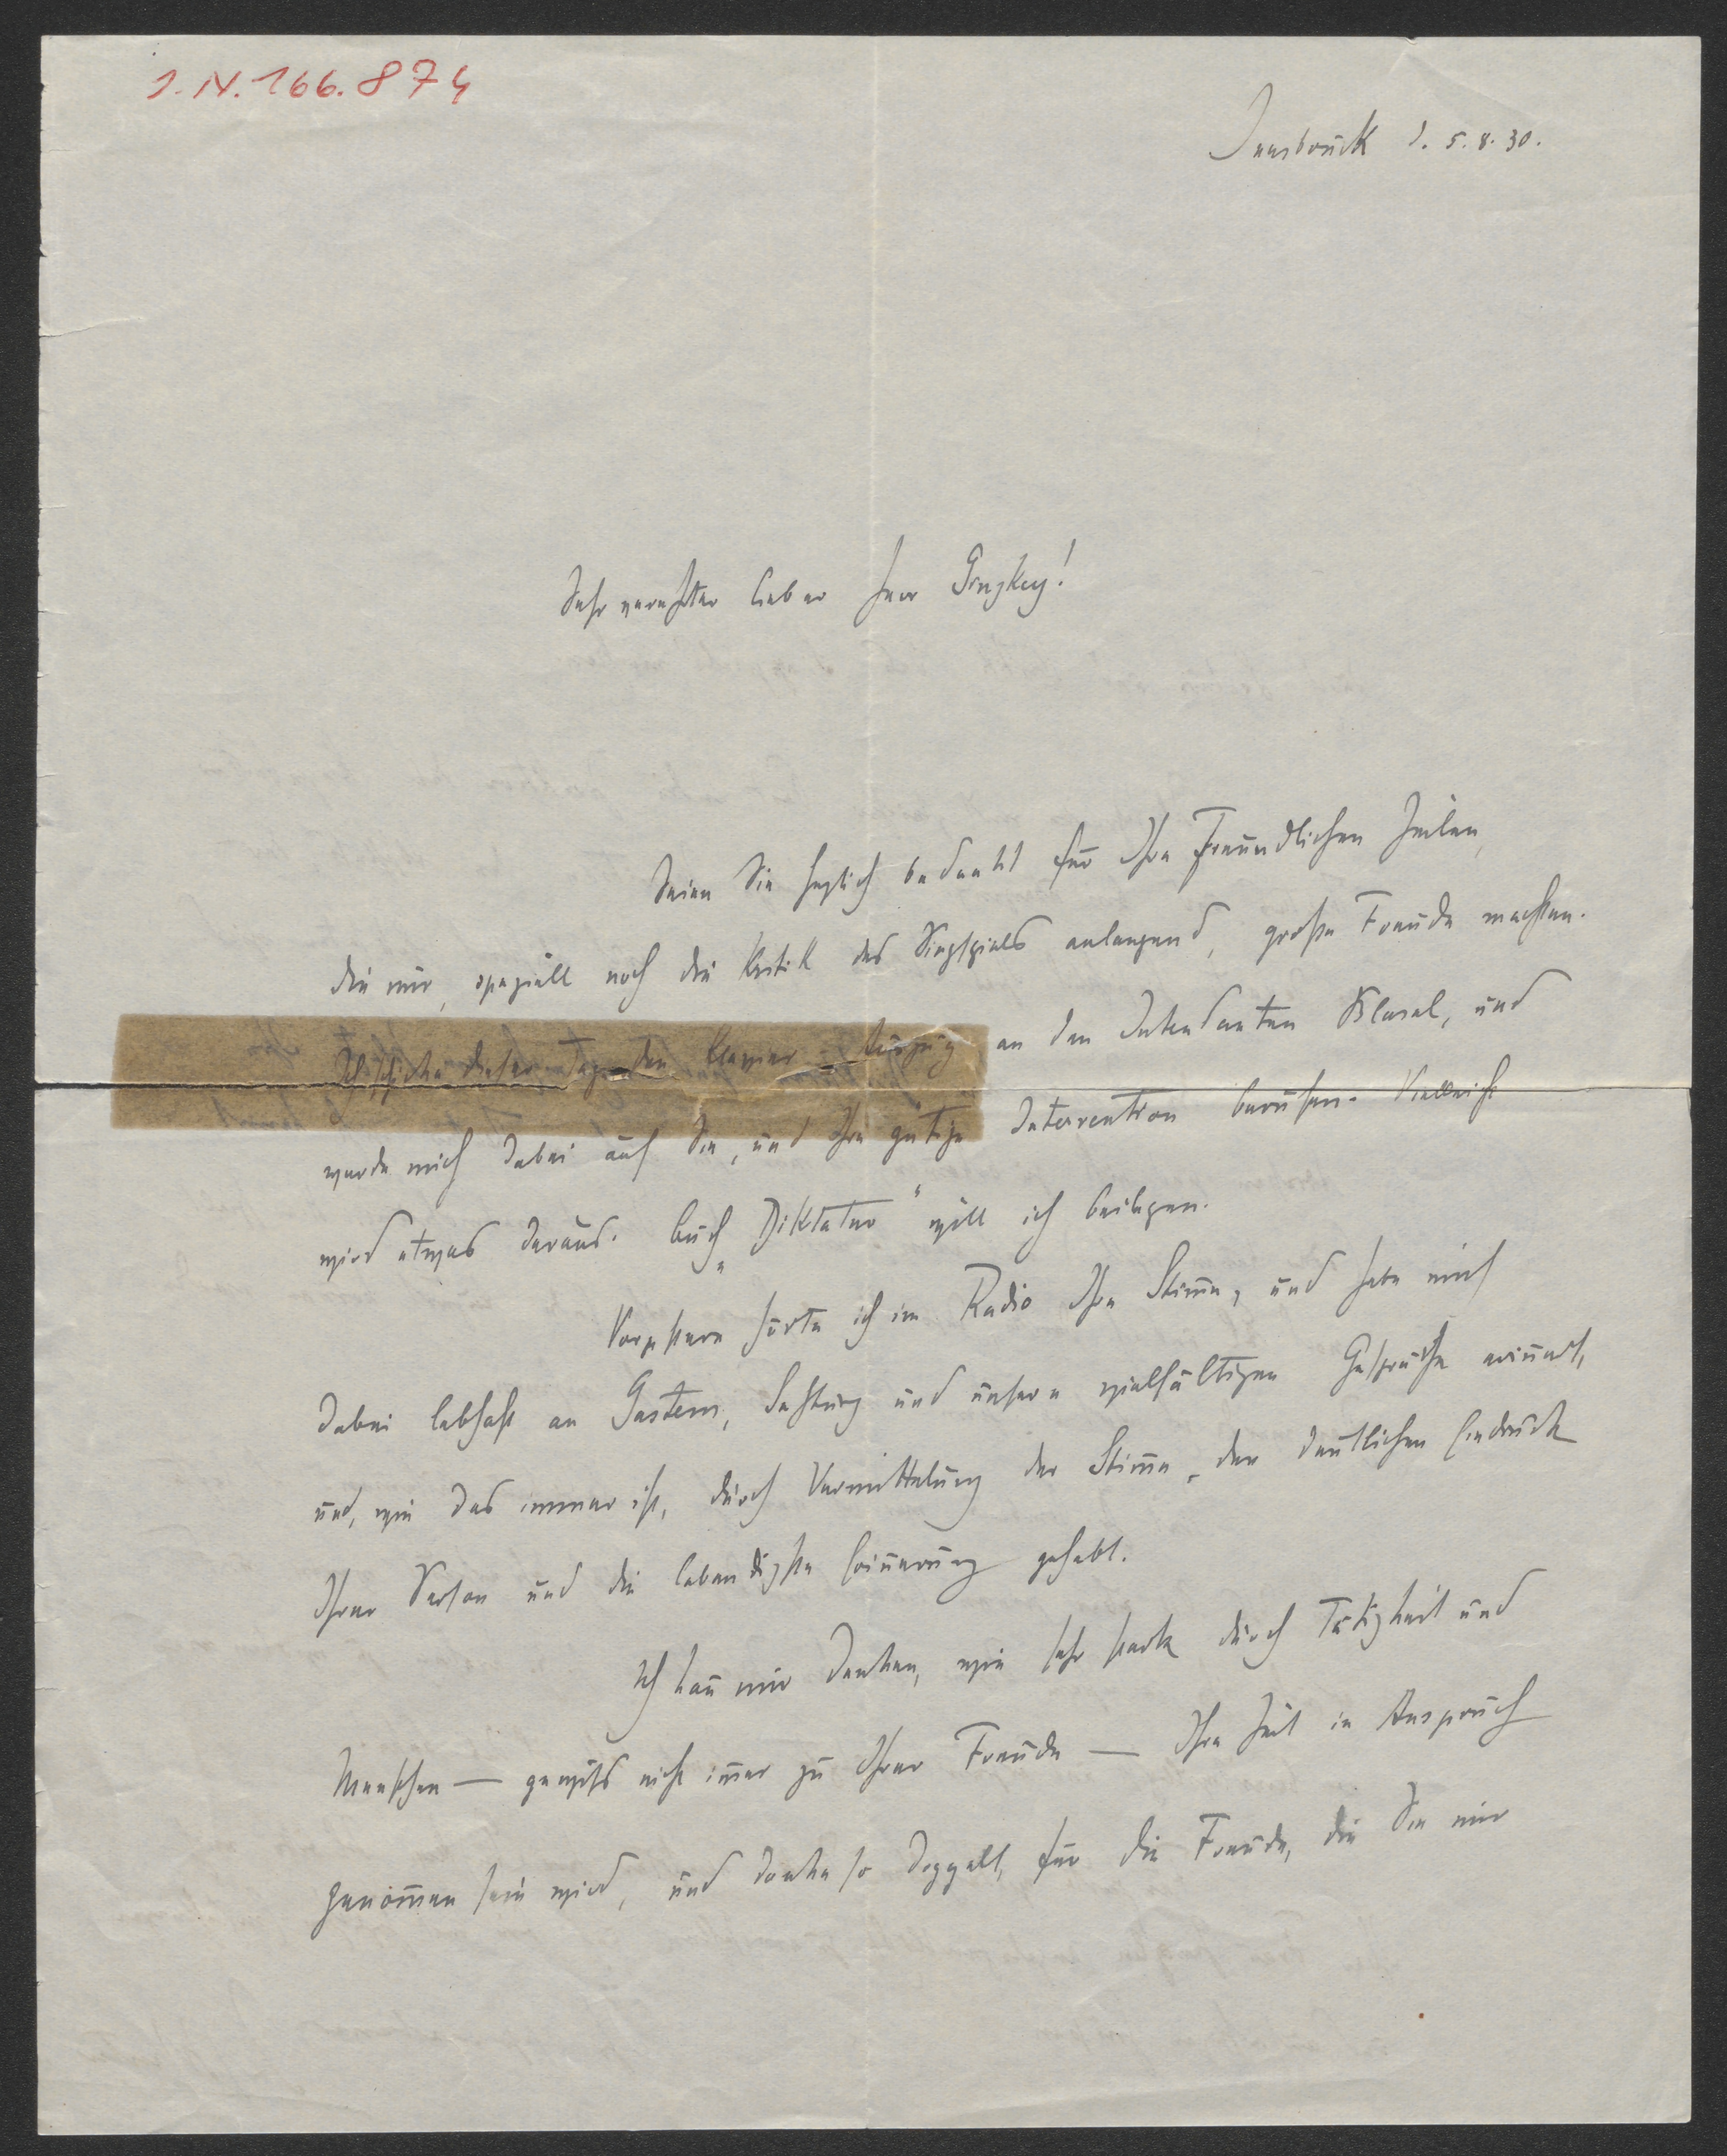 I. N. 166.874
Innsbruck d. 5.8.30.
Sehr verehrter lieber Herr Ginzkey!
Seien Sie herzlich bedankt für Ihre freundlichen Zeilen,
die mir, speziell noch die Kritik des Singspiels anlangend, große Freude machten.
Ich schicke dieser Tage den Klavier-Auszug an den Intendanten und
werde mich dabei auf Sie, und Ihre gütige Intervention berufen. Vielleicht
wird etwas daraus. Auch „Diktatur" will ich beilegen.
Vorgestern hörte ich im Radio Ihre Stimme, und habe mich
dabei lebhaft an Gastein, und unsere vielfältigen Gespräche erinnert,
und, wie das immer ist, durch Vermittelung der Stimme, den deutlichen Eindruck
Ihrer Person und die lebendigste Erinnerung gehabt.
Ich kann mir denken, wie sehr stark durch Tätigkeit und
Menschen — gewiss nicht immer zu Ihrer Freude — Ihre Zeit in Anspruch
genommen sein wird, und danke so doppelt, für die Freude, die Sie mir